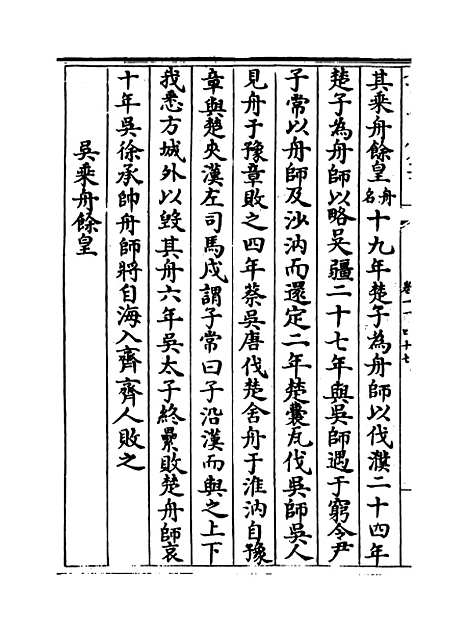 其乘舟餘皇舟名十九年楚子為舟師以伐濮二十四年
楚子為舟師以略吳疆二十七年與吳師遇于窮令尹
子常以舟師及沙汭而還定二年楚囊瓦伐吳師吳人
見舟于豫章敗之四年蔡吳唐伐楚舍舟于淮汭自豫
章與楚夾漢左司馬戍謂子常曰子沿漢而與之上下
我悉方城外以毀其舟六年吳太子終纍敗楚舟師哀
十年吳徐承帥舟師將自海入齊齊人敗之
吳乘舟餘皇